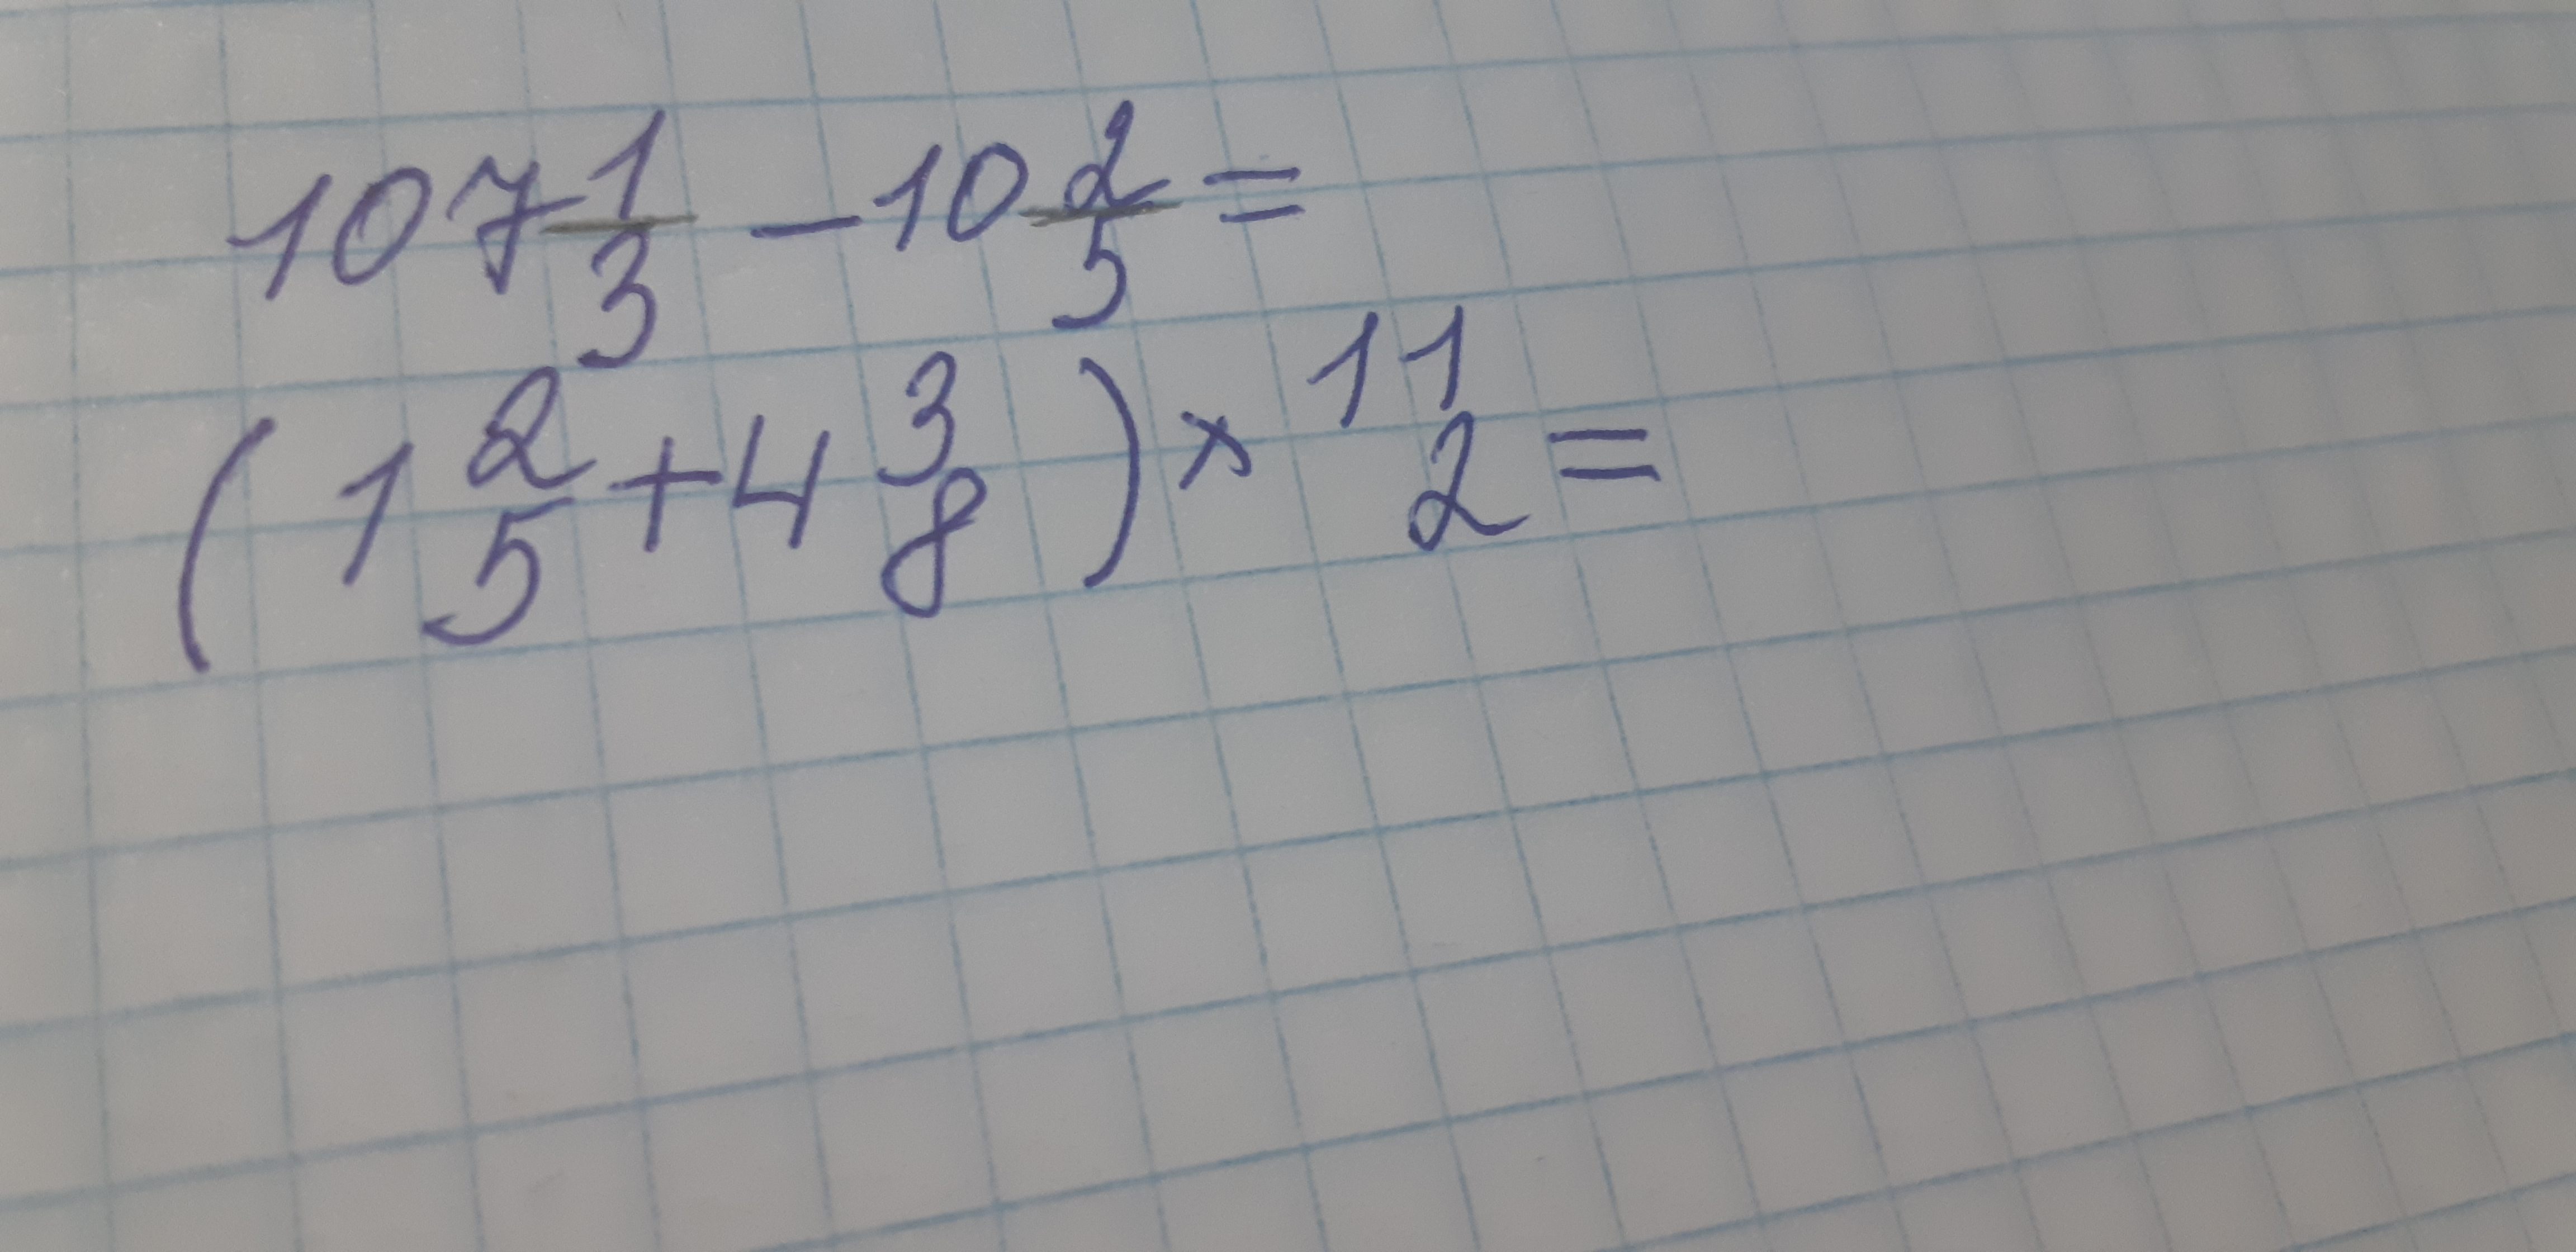 107 1/3 - 10 2/5 =
(1 2/5 + 4 3/8) × 11/2 =